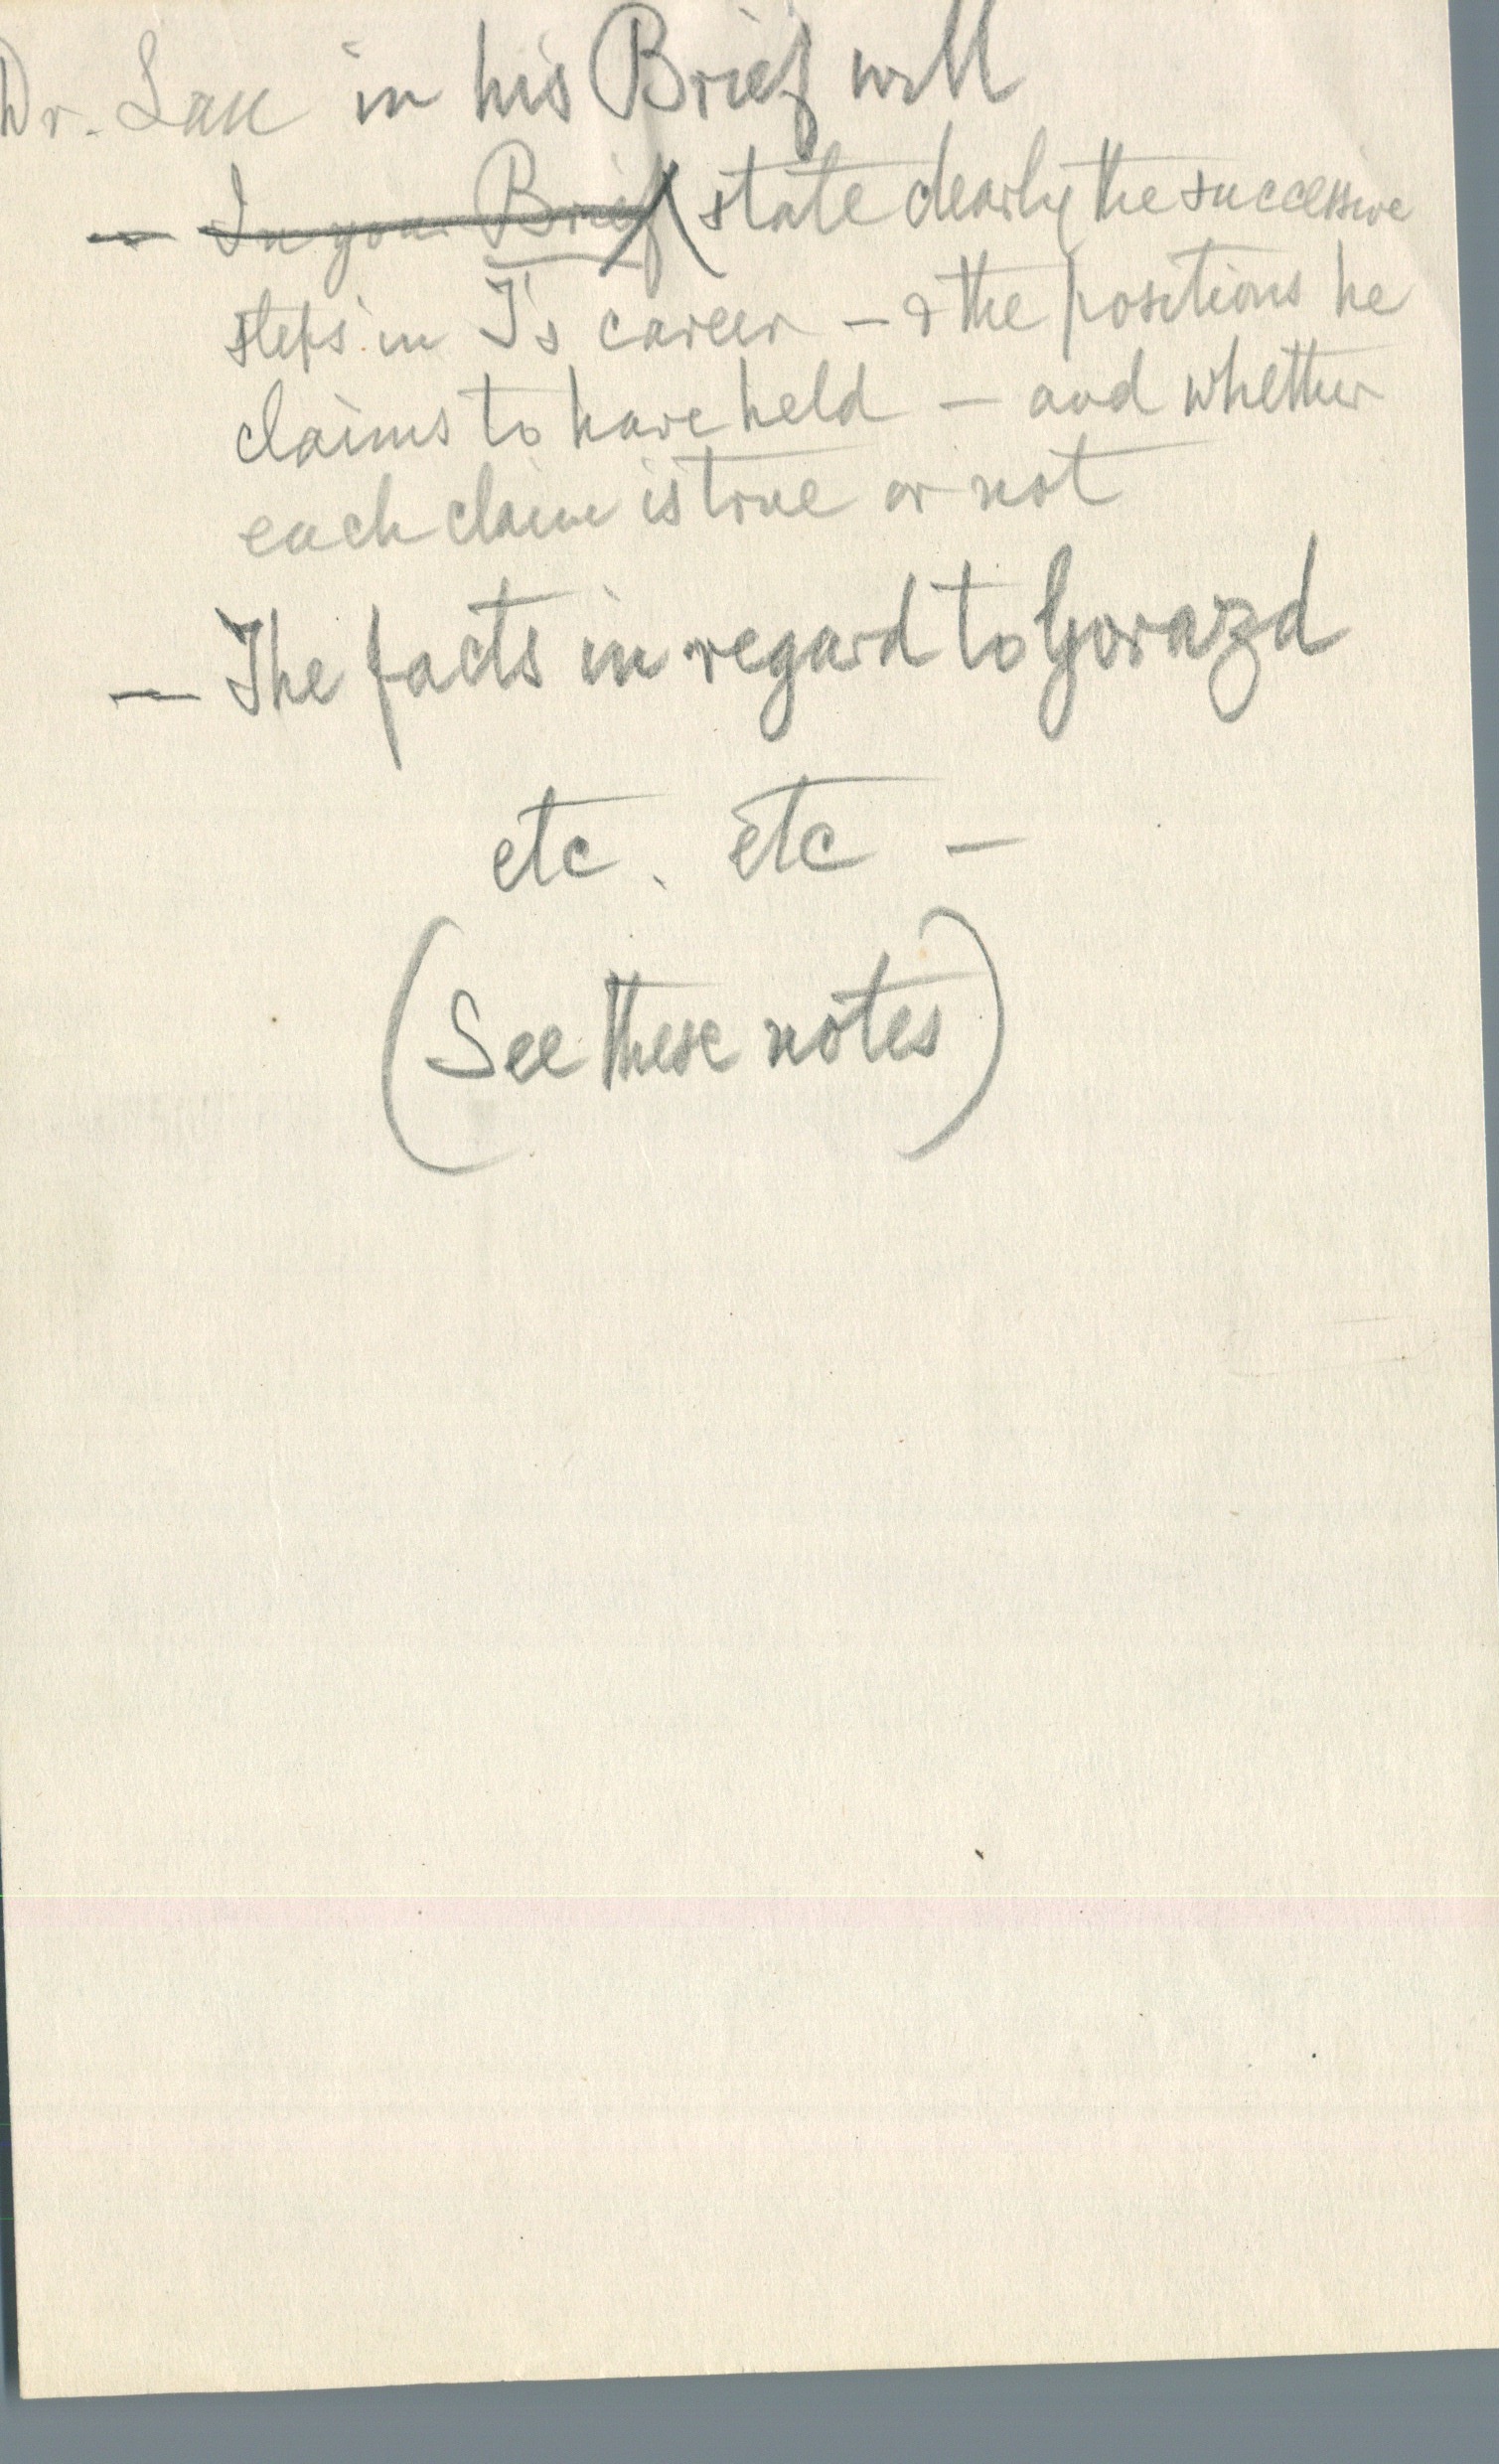 Dr. in his Brief will
— In your Brief state clearly the successive
steps in T's career — & the positions he
claims to have held — and whether
each claim is true or not
— The facts in regard to Gorazd
etc. etc —
(See these notes)